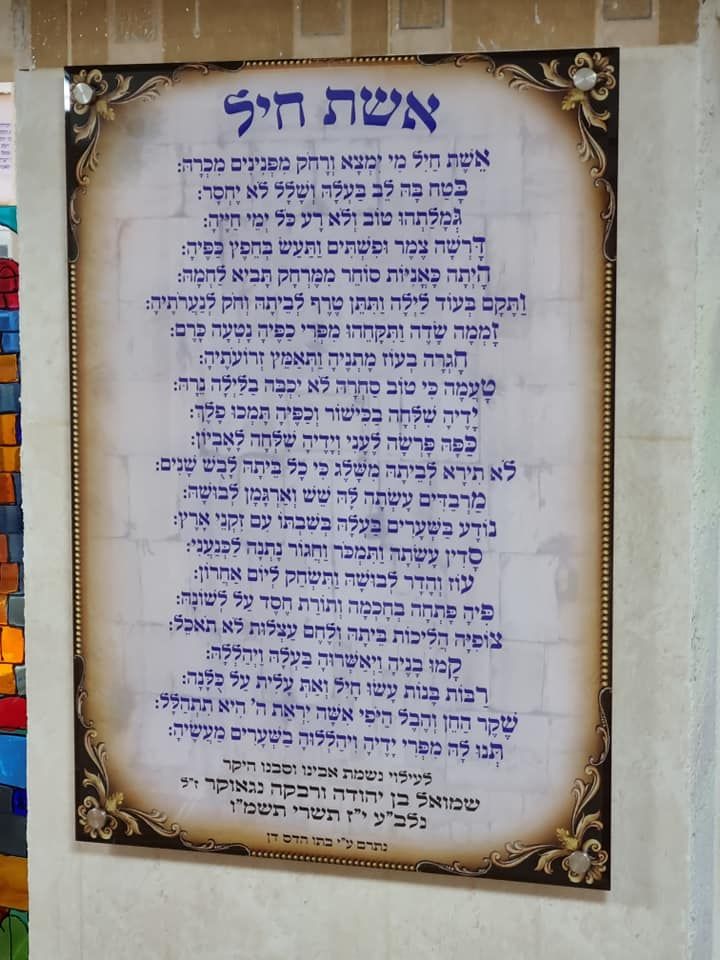 אשת חיל
אֵשֶׁת חַיִל מִי יִמְצָא וְרָחֹק מִפְּנִינִים מִכְרָהּ:
בָּטַח בָּהּ לֵב בַּעְלָהּ וְשָׁלָל לֹא יֶחְסָר:
גְּמָלַתְהוּ טוֹב וְלֹא רָע כֹּל יְמֵי חַיֶּיהָ:
דָּרְשָׁה צֶמֶר וּפִשְׁתִּים וַתַּעַשׂ בְּחֵפֶץ כַּפֶּיהָ:
הָיְתָה כָּאֳנִיּוֹת סוֹחֵר מִמֶּרְחָק תָּבִיא לַחְמָהּ:
וַתָּקָם בְּעוֹד לַיְלָה וַתִּתֵּן טֶרֶף לְבֵיתָהּ וְחֹק לְנַעֲרֹתֶיהָ:
זָמְמָה שָׂדֶה וַתִּקָּחֵהוּ מִפְּרִי כַפֶּיהָ נָטְעָה כָּרֶם:
חָגְרָה בְעוֹז מָתְנֶיהָ וַתְּאַמֵּץ זְרוֹעֹתֶיהָ:
טָעֲמָה כִּי טוֹב סַחְרָהּ לֹא יִכְבֶּה בַלַּיְלָה נֵרָהּ:
יָדֶיהָ שִׁלְּחָה בַכִּישׁוֹר וְכַפֶּיהָ תָּמְכוּ פָלֶךְ:
כַּפָּהּ פָּרְשָׂה לֶעָנִי וְיָדֶיהָ שִׁלְּחָה לָאֶבְיוֹן:
לֹא תִירָא לְבֵיתָהּ מִשָּׁלֶג כִּי כָל בֵּיתָהּ לָבֻשׁ שָׁנִים:
מַרְבַדִּים עָשְׂתָה לָּהּ שֵׁשׁ וְאַרְגָּמָן לְבוּשָׁהּ:
נוֹדָע בַּשְּׁעָרִים בַּעְלָהּ בְּשִׁבְתּוֹ עִם זִקְנֵי אָרֶץ:
סָדִין עָשְׂתָה וַתִּמְכֹּר וַחֲגוֹר נָתְנָה לַכְּנַעֲנִי:
עוֹז וְהָדָר לְבוּשָׁהּ וַתִּשְׂחַק לְיוֹם אַחֲרוֹן:
פִּיהָ פָּתְחָה בְחָכְמָה וְתוֹרַת חֶסֶד עַל לְשׁוֹנָהּ:
צוֹפִיָּה הֲלִיכוֹת בֵּיתָהּ וְלֶחֶם עַצְלוּת לֹא תֹאכֵל:
קָמוּ בָנֶיהָ וַיְאַשְּׁרוּהָ בַּעְלָהּ וַיְהַלְלָהּ:
רַבּוֹת בָּנוֹת עָשׂוּ חָיִל וְאַתְּ עָלִית עַל כֻּלָּנָה:
שֶׁקֶר הַחֵן וְהֶבֶל הַיֹּפִי אִשָּׁה יִרְאַת ה' הִיא תִתְהַלָּל:
תְּנוּ לָהּ מִפְּרִי יָדֶיהָ וִיהַלְלוּהָ בַשְּׁעָרִים מַעֲשֶׂיהָ:
לעילוי נשמת אבינו וסבנו היקר
שמואל בן יהודה ורבקה נגאוקר ז"ל
נלב"ע י"ז תשרי תשמ"ו
נתרם ע"י בתו הדס דן